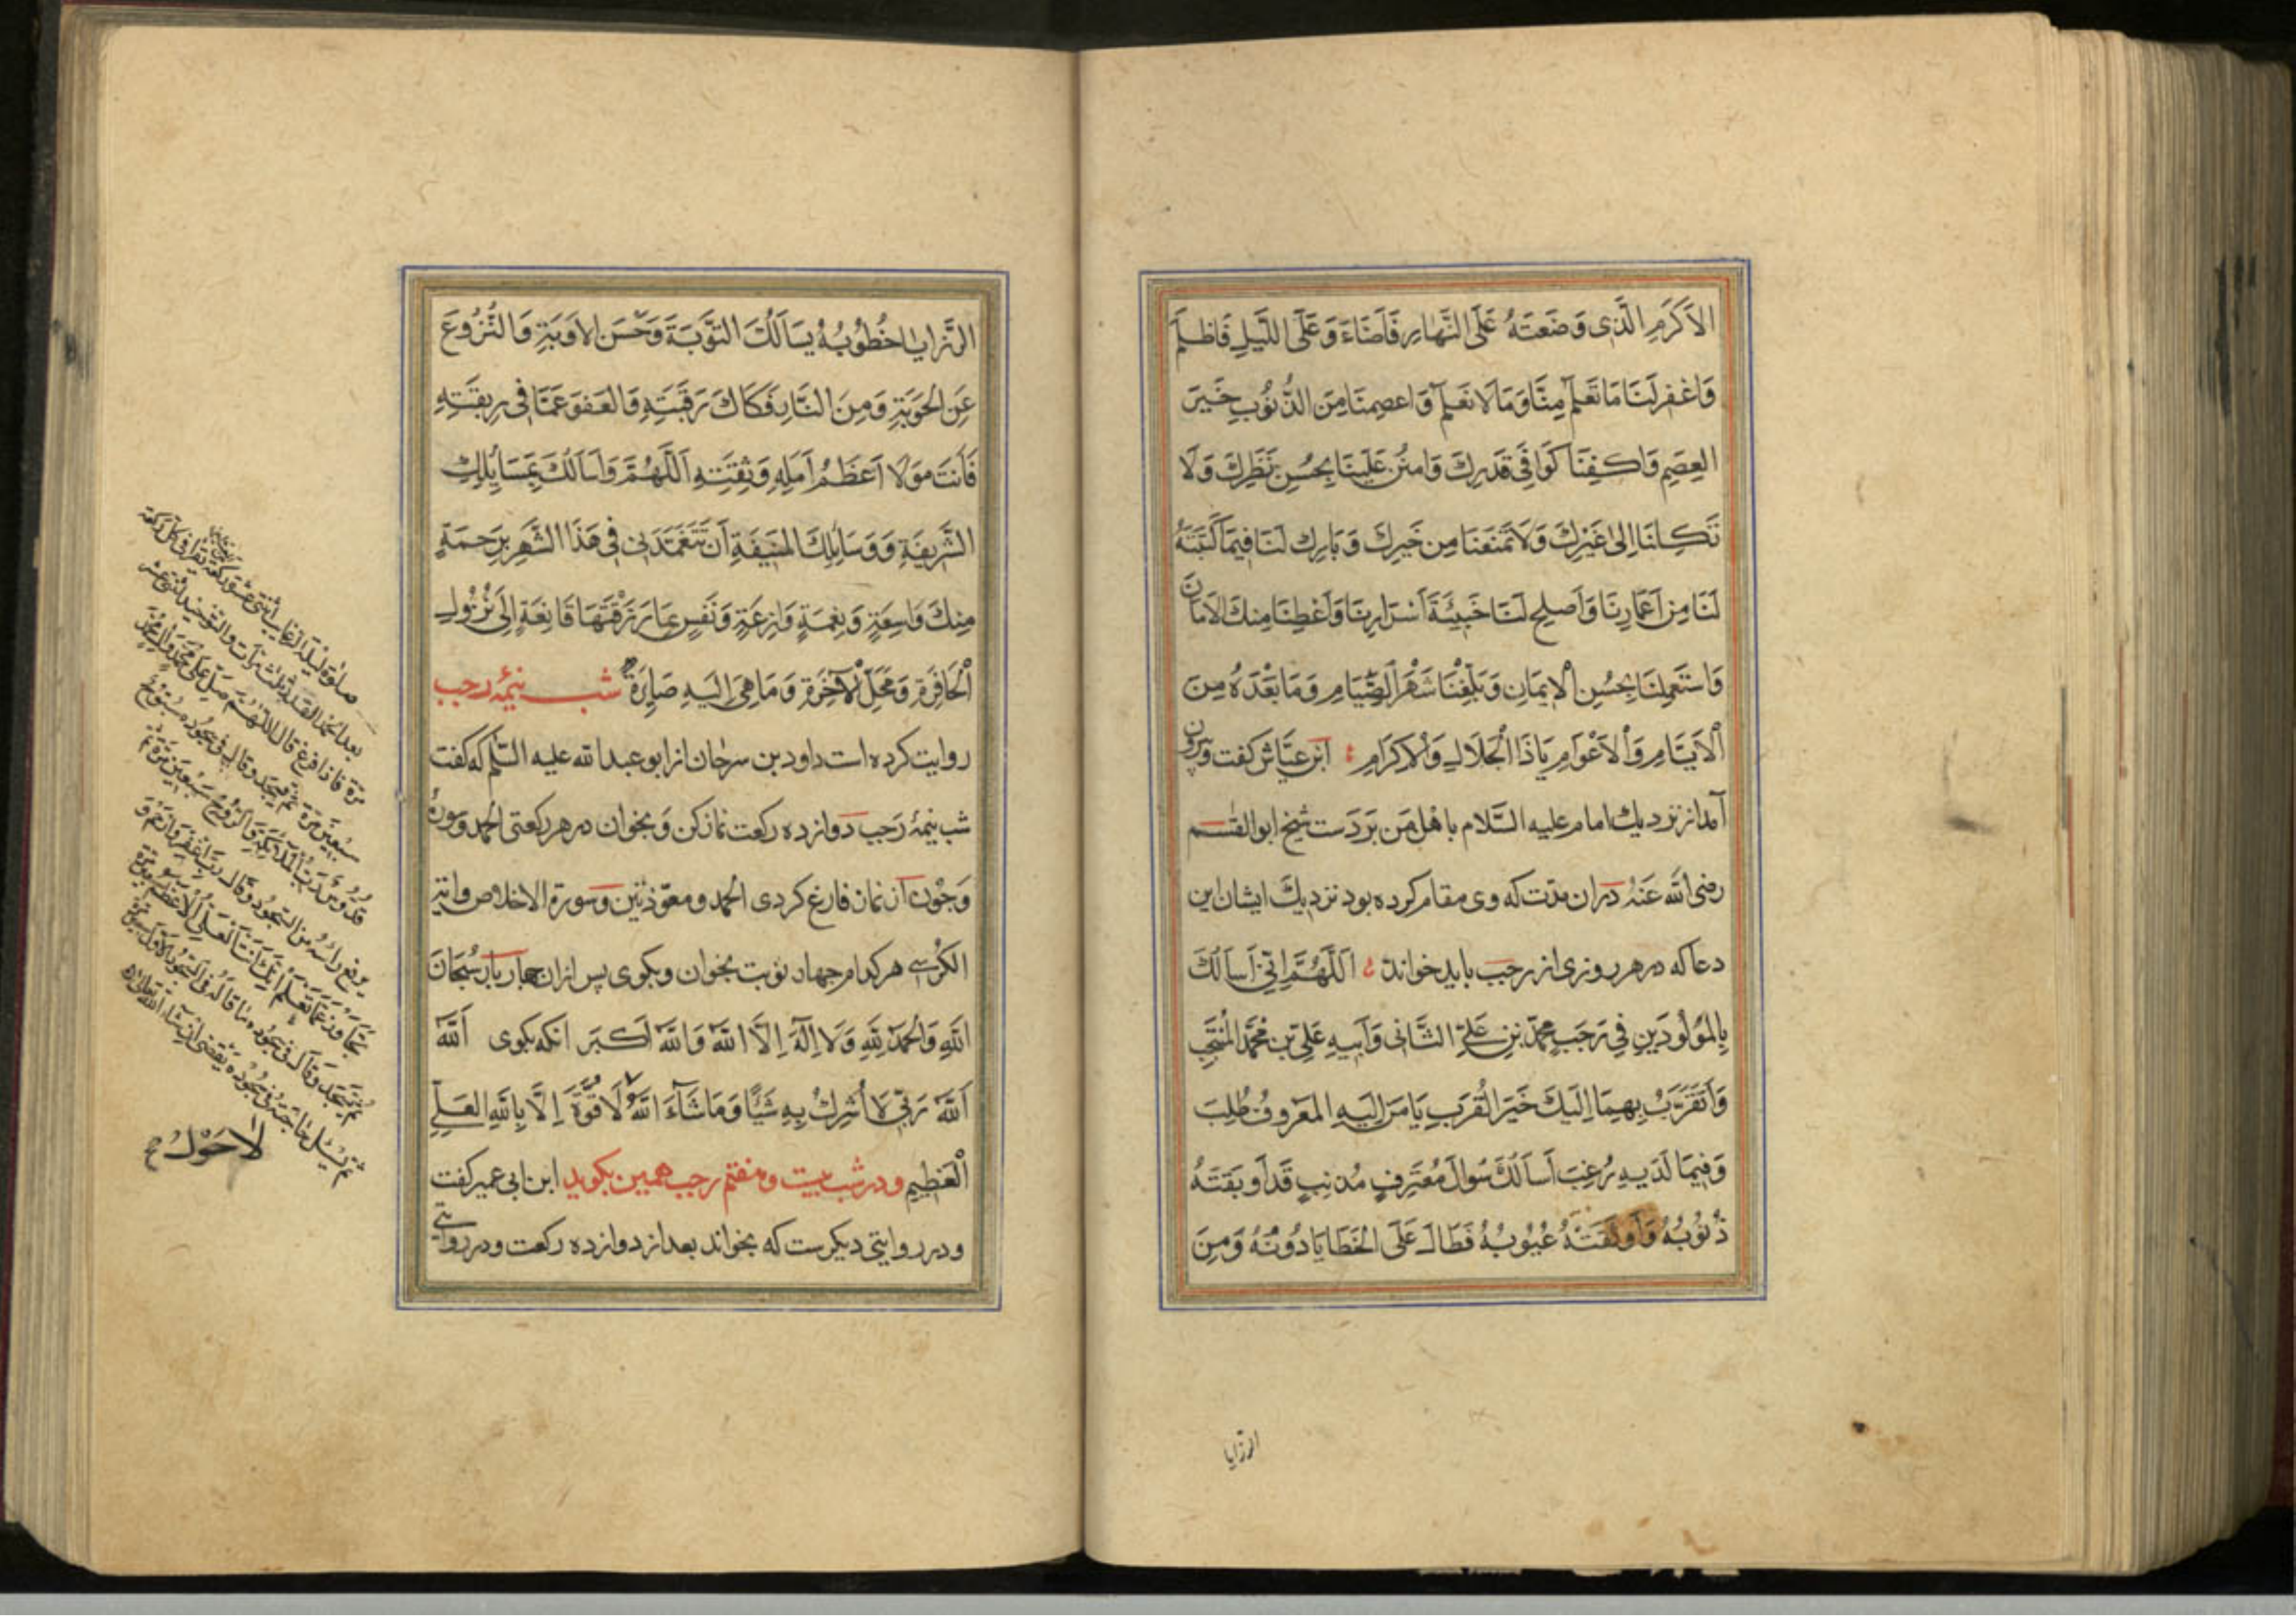 الاَكرَمِ الَّذِى وَضَعتَهُ عَلَى النَّهارِ فَاَضَاءَ وَعَلَى اللَّيلِ فَاظلَمَ
وَاغفِر لَنَا مَا تَعلَمُ مِنَّا وَمَا لَا نَعلَمُ وَاعصِمنَا مِنَ الذُّنُوبِ خَيرَ
العِصَمِ وَاكفِنَا كَوَافِىَ قَدَرِكَ وَامنُن عَلَينَا بِحُسنِ نَظَرِكَ وَلَا
تَكِلنَا اِلى غَيرِكَ وَلَا تَمنَعنَا مِن خَيرِكَ وَبَارِك لَنَا فِيمَا كَتَبتَهُ
لَنَا مِن اَعمَارِنَا وَاَصلِح لَنَا خَبِيئَةَ اَسرَارِنَا وَاَعطِنَا مِنكَ الاَمَانَ
وَاستَعمِلنَا بِحُسنِ الاِيمَانِ وَبَلِّغنَا شَهرَ الصِّيَامِ وَمَا بَعدَهُ مِنَ
الاَيَّامِ وَالاَعوَامِ يَاذَا الجَلَالِ وَالاِكرَامِ ابن عيّاش كفت و بيرون
آمد از نزديك امام عليه السّلام با هل من بر دست شيخ ابو القسم
رضى الله عنه در ان مدّت كه وى مقام كرده بود نزديك ايشان اين
دعا كه در هر روزى از رجب بايد خواند اَللّهُمَّ اِنّى اَساَلُكَ
بِالمَولُودَينِ فِى رَجَبٍ مُحَمَّدِ بنِ عَلِىٍّ الثَّانِى وَابنِهِ عَلِىّ بنِ مُحَمَّدٍ المُنتَجَبِ
وَاَتَقَرَّبُ بِهِمَا اِلَيكَ خَيرَ القُرَبِ يَا مَن اِلَيهِ المَعرُوفُ طُلِبَ
وَفِيمَا لَدَيهِ رُغِبَ اَساَلُكَ سُوالَ مُعتَرِفٍ مُذنِبٍ قَد اَوبَقَتهُ
ذُنُوبُهُ وَاَوثَقَتهُ عُيُوبُهُ فَطَالَ عَلَى الخَطَايَا دُونُهُ وَمِنَ
الرزايا
الرَّزَايَا خُطُوبُهُ يَساَلُكَ التَّوبَةَ وَحُسنَ الاَوبَةِ وَالنُّزُوعَ
عَنِ الحَوبَةِ وَمِنَ النَّارِ فَكَاكَ رَقَبَتِهِ وَالعَفوَ عَمَّا فِى رِبقَتِهِ
فَاَنتَ مَولَا اَعظَمُ اَمَلِهِ وَثِقَتِهِ اَللّهُمَّ وَاَساَلُكَ بِمَسَايِلِكَ
الشَّرِيفَةِ وَوَسَايِلِكَ المُنِيفَةِ اَن تَتَغَمَّدَنِى فِى هذَا الشَّهرِ بِرَحمَةٍ
مِنكَ وَاسِعَةٍ وَنِعمَةٍ وَازِعَةٍ وَنَفسٍ بِمَا رَزَقتَهَا قَانِعَةٍ اِلَى نُزُولِ
الحَافِرَةِ وَمَحَلِّ الآخِرَةِ وَمَا هِىَ اِلَيهِ صَايِرَةٌ شب نيمهٔ رجب
روايت كرده است داود بن سرحان از ابو عبد الله عليه السّلم كه كفت
شب نيمهٔ رجب دوازده ركعت نماز كن و بخوان در هر ركعتى الحمد و سورهٔ
و چون از ان نماز فارغ كردى الحمد و معوّذتين و سورة الاخلاص و اية
الكرسى هر كدام چهار نوبت بخوان و بكوى پس از ان چهار بار سُبحَانَ
اللهِ وَالحَمدُ لِلّهِ وَلَا اِلهَ اِلَّا اللهُ وَاللهُ اَكبَر انكه بكوى اَللهُ
اَللهُ رَبِّى لَا اُشرِكُ بِهِ شَيئًا وَمَا شَاءَ اللهُ لَا قُوَّةَ اِلَّا بِاللهِ العَلِىِّ
العَظِيمِ و در شب بيست و هفتم رجب همين بكويد ابن ابى عمير كفت
و در روايتى ديكرست كه بخواند بعد از دوازده ركعت و در روايتى
صلوة ليلة الرغايب اثنتى عشرة ركعة تقرا فى كل ركعة
بعد الحمد القدر ثلث مرات والتوحيد اثنتى عشر
مرة فاذا فرغ قال اللهم صل على محمد وآل محمد
سبعين مرة ثم يسجد وقال فى سجوده سبوح
قدوس رب الملائكة والروح سبعين مرة ثم
يرفع راسه من السجود وقال رب اغفر وارحم و
تجاوز عما تعلم انك انت العلى الاعظم سبعين مرة
ثم يسجد وقال فى سجوده ما قاله فى السجود الاول
ثم يسئل حاجته فى سجوده يقضى ان شاء الله تعالى
لا حول